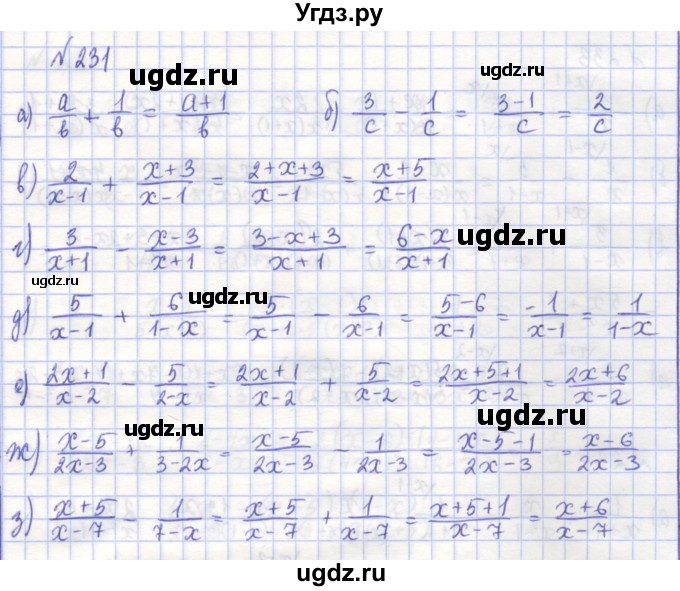 Угдз.ру
№231
ugdz.ru ugdz.ru
а) a/в + 1/в = a+1/в б) 3/c - 1/c = 3-1/c = 2/c
в) 2/x-1 + x+3/x-1 = 2+x+3/x-1 = x+5/x-1
г) 3/x+1 - x-3/x+1 = 3-x+3/x+1 = 6-x/x+1
ugdz.ru
ugdz.ru
ugdz.ru
д) 5/x-1 + 6/1-x = 5/x-1 - 6/x-1 = 5-6/x-1 = -1/x-1 = 1/1-x
е) 2x+1/x-2 - 5/2-x = 2x+1/x-2 + 5/x-2 = 2x+5+1/x-2 = 2x+6/x-2
ugdz.ru
ugdz.ru
ж) x-5/2x-3 + 1/3-2x = x-5/2x-3 - 1/2x-3 = x-5-1/2x-3 = x-6/2x-3
з) x+5/x-7 - 1/7-x = x+5/x-7 + 1/x-7 = x+5+1/x-7 = x+6/x-7
ugdz.ru